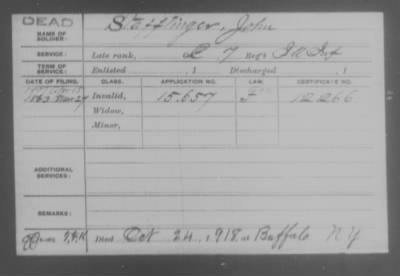 DEAD
NAME OF SOLDIER: Stafflinger, John
SERVICE: Late rank, C 7 Reg't Ill Inf
TERM OF SERVICE: Enlisted , 1 Discharged , 1
DATE OF FILING. CLASS. APPLICATION NO. LAW. CERTIFICATE NO.
1863 Mar 27 Invalid, 15.657 12266
Widow,
Minor,
ADDITIONAL SERVICES:
REMARKS:
Died Oct 24, 1918 at Buffalo N Y